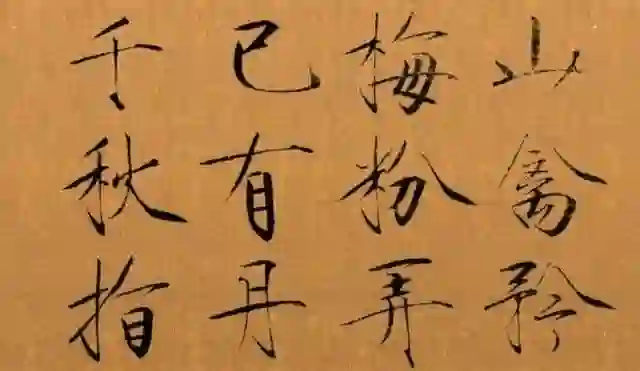 山禽矜
梅粉弄
已有丹
千秋指